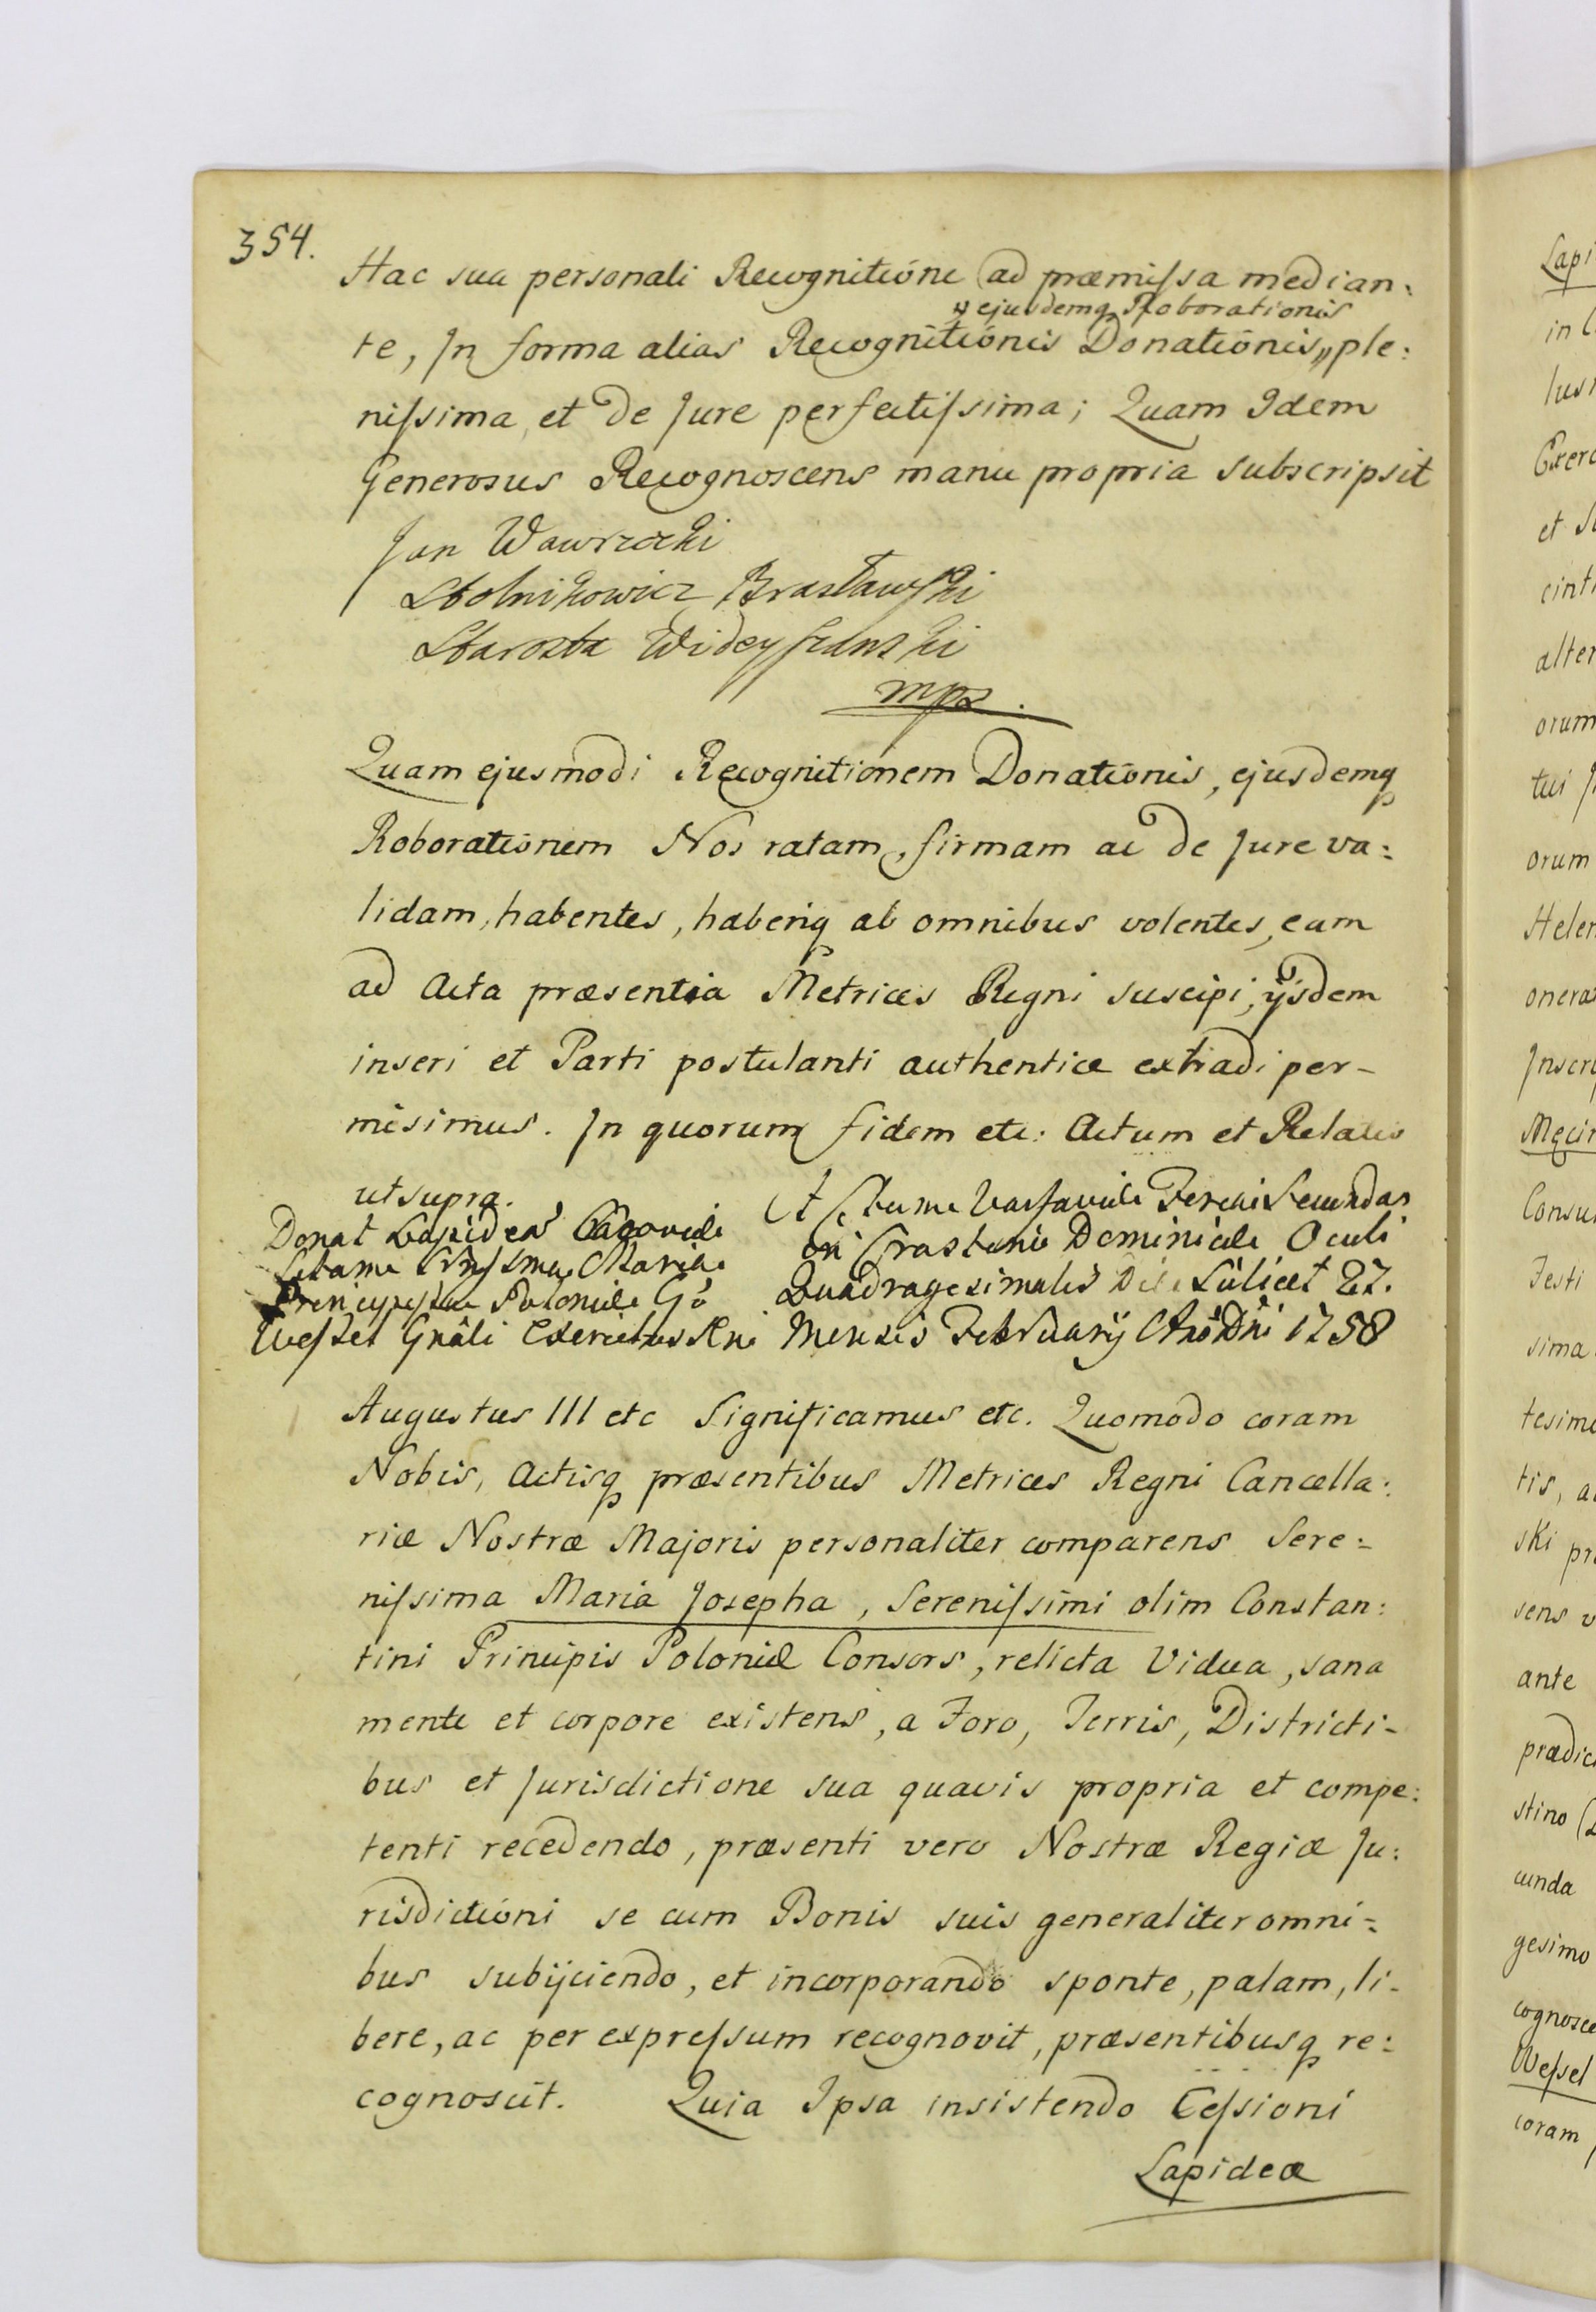 354.
Hac sua personali Recognitione ad præmissa median:
ejusdemq Roborationis
te, In forma alias Recognitionis Donationis,, ple:
nissima et de Jure perfectissima; Quam Idem
Generosus Recognoscens manu propria subscripsit
Jan Wawrzecki
Stolnikowicz Brasławski
Starosta
mpa.
Quam ejusmodi Recognitionem Donationis, ejusdemq
Roborationem Nos ratam, firmam ac de Jure va:
lidam, habentes, haberiq ab omnibus volentes, eam
ad Acta præsentia Metrices Regni suscipi, ijsdem
inseri et Parti postulanti authentice extradi per-
misimus. In quorum fidem etc: Actum et Relatis
ut supra.
Donat Lapidea
Principissæ Poloniæ Gō
Wessel Gnāli Exercitus
Actum Varsaviæ Feria Secunda
in Crastino Dominicæ Oculi
Quadragesimalis Die Scilicet 27.
Mensis Februarij Anō Dni 1758
Augustus III etc Significamus etc. Quomodo coram
Nobis, Actisq præsentibus Metrices Regni Cancella:
riæ Nostræ Majoris personaliter comparens Sere:
nissima Maria Josepha, Serenissimi olim Constan:
tini Principis Poloniæ Consors, relicta Vidua, sana
mente et corpore existens, a Foro, Terris, Districti-
bus et Jurisdictione sua quavis propria et compe:
tenti recedendo, præsenti vero Nostræ Regiæ Ju:
risdictioni se cum Bonis suis generaliter omni=
bus subijciendo, et incorporando sponte, palam, li-
bere, ac per expressum recognovit, præsentibusq re:
cognoscit. Quia Ipsa insistendo Cessioni
Lapideæ
Lapi
in
Exerc
et
alter
orum
tui
orum
Helen
oneras
Inscri
Consu
Testi
sima
tesimo
tis, a
ski pr
sens v
ante
prædic
stino
cunda
gesimo
cognosce
Wessel
coram